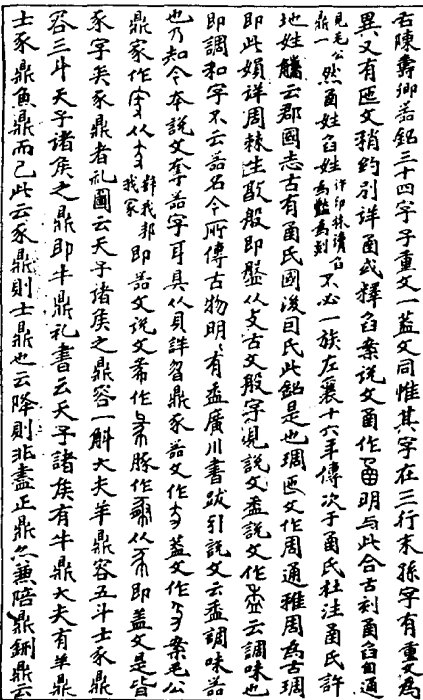 右陳壽卿器銘三十四字子重文一蓋文同惟其字在三行末孫字有重文為
異又有匜文稍約別詳圅或釋臽案說文圅作圅明与此合古刻圅臽自通
見毛公鼎一然圅姓臽姓許印林讀臽為豔為剡不必一族左襄十六年傳次于圅氏杜注圅氏許
地姓觿云郡國志古有圅氏國後曰氏此銘是也琱匜文作周通雅周為古琱
即此娟詳周棘生敦般即盤从攴古文般字見說文盉說文作盉云調味也
即調和字不云器名今所傳古物明明有盉廣川書跋引說文云盉調味器
也乃知今本說文奪器字耳具从貝詳曶鼎豕器文作蓋文作案毛公
鼎家作从辥我邦我家即器文說文希作豚作从即蓋文是皆
豕字矣豕鼎者礼圖云天子諸矦之鼎容一斛大夫羊鼎容五斗士豕鼎
容三斗天子諸矦之鼎即牛鼎礼書云天子諸矦有牛鼎大夫有羊鼎
士豕鼎魚鼎而已此云豕鼎則士鼎也云降則非盡正鼎公兼陪鼎鉶鼎云